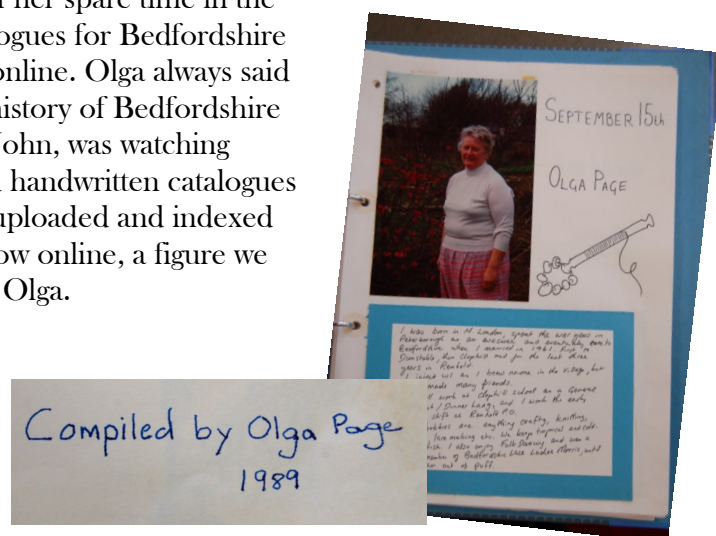 r her spare time in the
ogues for Bedfordshire
online. Olga always said
history of Bedfordshire
John, was watching
handwritten catalogues
uploaded and indexed
ow online, a figure we
Olga.
SEPTEMBER 15th
OLGA PAGE
I was born in N. London, spent the war years in
Peterborough as an evacuee and eventually came to
Bedfordshire when I married in 1961. First to
Dunstable, then Clophill and for the last three
years in Renhold.
I knew no-one in the village, but
made many friends.
work at Clophill school as a General
/ Dinner Lady, and I work the early
shift at Renhold P.O.
are anything crafty, knitting,
lace making etc. We keep tropical and cold
fish. I also enjoy Folk Dancing and was a
member of Bedfordshire Lace Ladies Morris, until
out of puff.
Compiled by Olga Page
1989